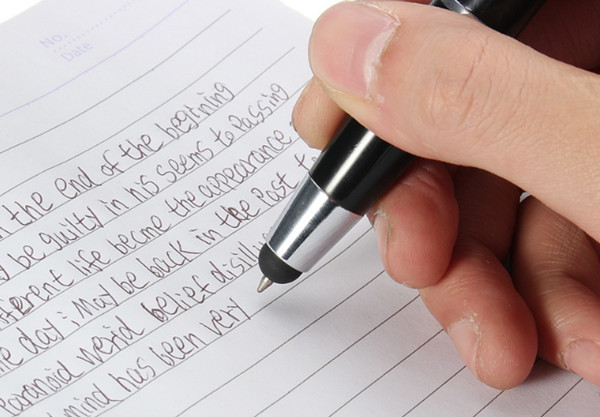 No
Date
the end of the beginning
be guilty in his seems to passing
ifferent life become the appearance
e day; May be back in the Past t
Paranoid weird belief disill
mind has been very